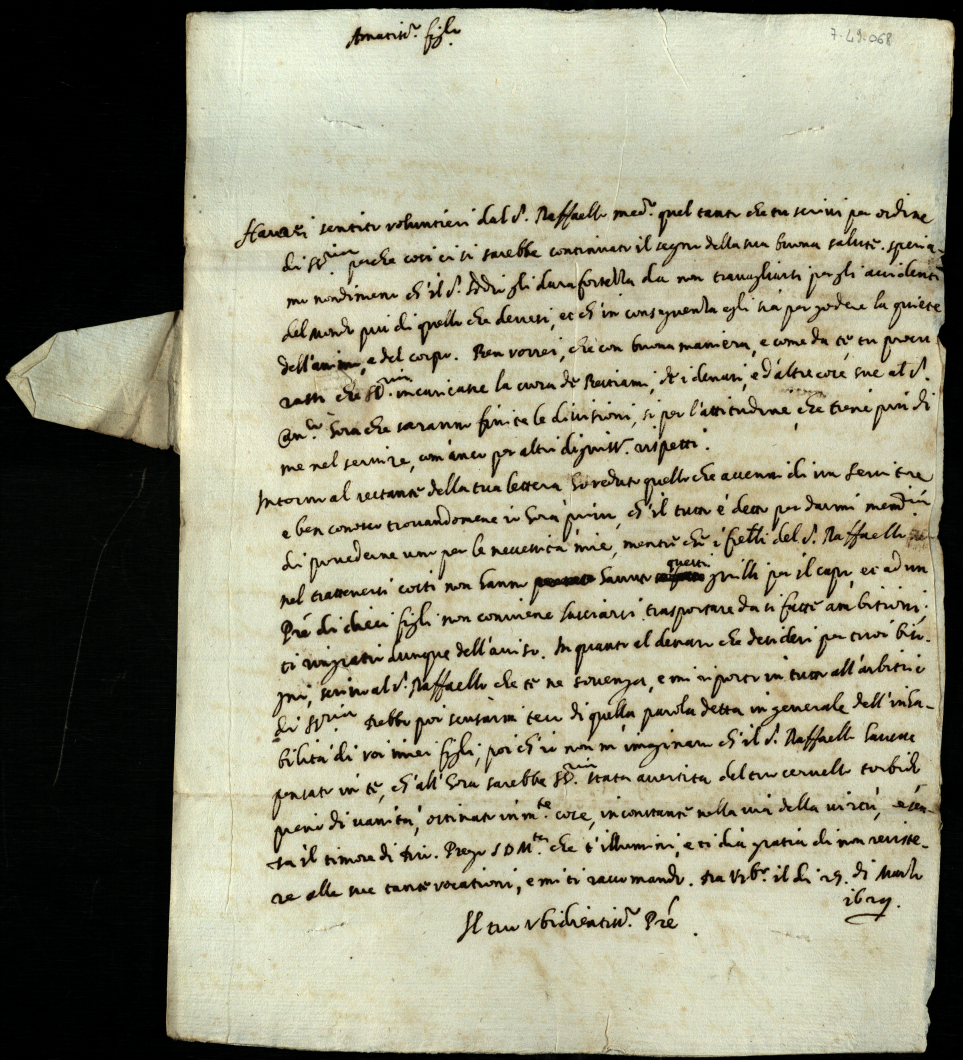 Amatiss.º figl.º
7-49-068
Haverei sentito voluntieri dal S.r Raffaello med.º quel tanto che tu scrivi per ordine
di S.S.ria perche cosi ci si sarebbe continuato il segno della sua buona salute. speria-
mo nondimeno ch'il S.r Iddio gli dara fortezza da non travagliarsi per gli accidenti
del Mondo piu di quello che devesi, et ch'in conseguenza egli sia per godere la quiete
dell'animo, e del corpo. Ben vorrei, che con buona maniera, e come da te, tu procu
rassi che S.S.ria incaricasse la cura de Bestiami, de i denari, e d'altre cose sue al S.r
hora che saranno finite le divisioni, si per l'attitudine, che tiene piu di
me nel servire, com'anco per altri digniss.i rispetti.
Intorno al restante della tua lettera ho veduto quello che accenni di un servitore
e ben conosco trovandomene io hora privo, ch'il tutto è detto per darmi
di provederne uno per le necessità mie, mentre che i fratelli del S.r Raffaello
nel trattenersi costi non hanno havuto questi grilli per il capo, et ad un
Pre di dieci figli non conviene lasciarsi trasportare da si fatte ambitioni.
ti ringratio dunque dell'aviso. In quanto al denaro che desideri per tuoi biso-
gni, scrivo al S.r Raffaello che te ne sovenga, e mi riporto in tutto all'arbitrio
di S.S.ria debbo poi scusarmi teco di quella parola detta in generale dell'inha-
bilità di voi miei figli, poi ch'io non m'imaginavo ch'il S.r Raffaello havesse
pensato in te, ch'all'hora sarebbe S.S.ria stata avertita del tuo cervello torbido
pieno di vanità, ostinato in m.te cose, inconstante nella via della virtù, e sen-
za il timore di Dio. Prego S D M.tà che t'illumini, e ti dia gratia di non resiste-
re alle sue tante vocationi, e mi ti raccomando. Da Urb.º il di 29. di Marzo
1629.
Il tuo Ubidientiss.º Pre